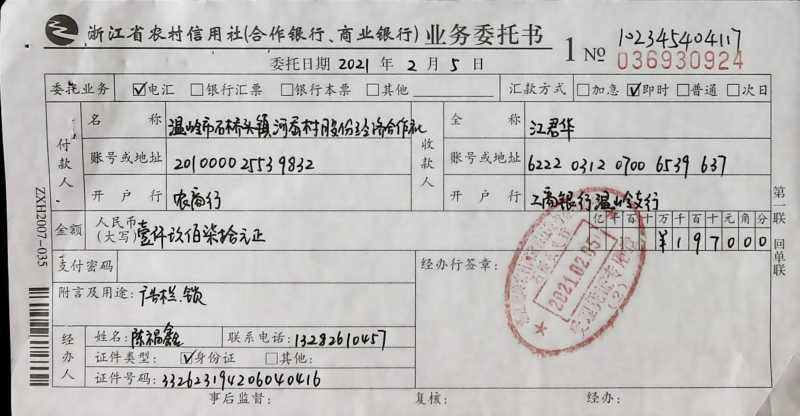 浙江省农村信用社(合作银行、商业银行) 业务委托书
1 № 102345404117
036930924
委托日期 2021 年 2 月 5 日
委托业务 ☑电汇 □银行汇票 □银行本票 □其他 汇款方式 □加急 ☑即时 □普通 □次日
付款人 名称 温岭市石桥头镇 村股份经济合作社 收款人 全称 江君华
账号或地址 201000025539832 账号或地址 6222 0312 0700 6539 637
开户行 农商行 开户行 工商银行温岭支行
金额 人民币(大写) 壹仟玖佰柒拾元正 亿千百十万千百十元角分
¥197000
支付密码 经办行签章:
附言及用途: 广告栏.锁
2021.02.05
(2)
经办人 姓名: 陈福鑫 联系电话: 13282610457
证件类型: ☑身份证 □其他:
证件号码: 332623194206040416
事后监督: 复核: 经办:
ZXH2007-035
第一联 回单联